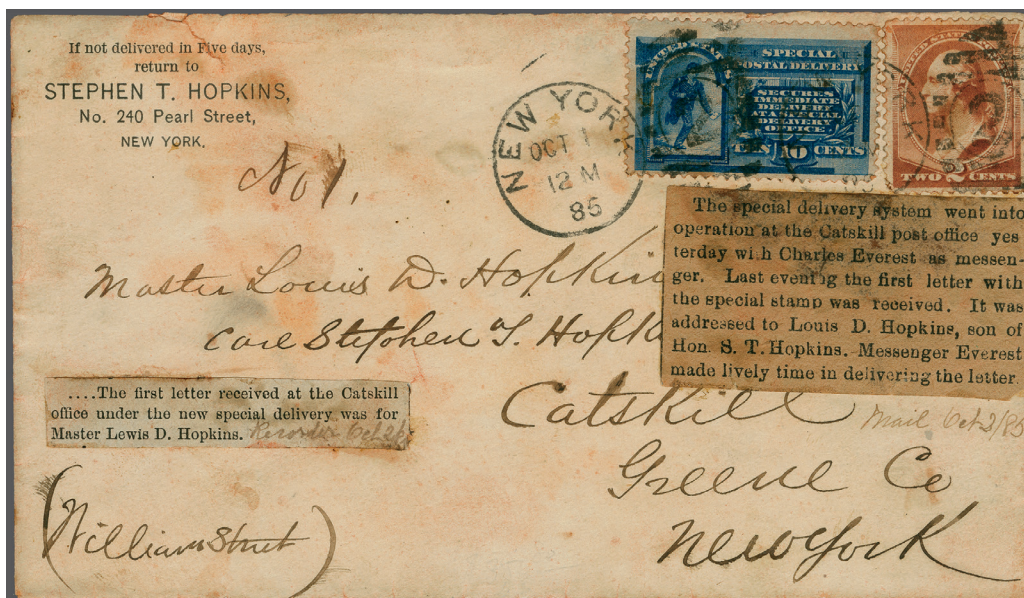 If not delivered in Five days,
return to
STEPHEN T. HOPKINS,
No. 240 Pearl Street,
NEW YORK.
No 1.
NEW YORK
OCT 1
12 M
85
UNITED STATES
SPECIAL
POSTAL DELIVERY
SECURES
IMMEDIATE
DELIVERY
AT A SPECIAL
DELIVERY
OFFICE
TEN 10 CENTS
TWO 2 CENTS
The special delivery system went into
operation at the Catskill post office yes
terday with Charles Everest as messen-
ger. Last evening the first letter with
the special stamp was received. It was
addressed to Louis D. Hopkins, son of
Hon. S. T. Hopkins. Messenger Everest
made lively time in delivering the letter.
Mail Oct 2/85
Master Louis D. Hopkin
care Stephen T. Hopk
Catskill
Greene Co
New York
....The first letter received at the Catskill
office under the new special delivery was for
Master Lewis D. Hopkins. Recorder Oct 2/
(William Street)